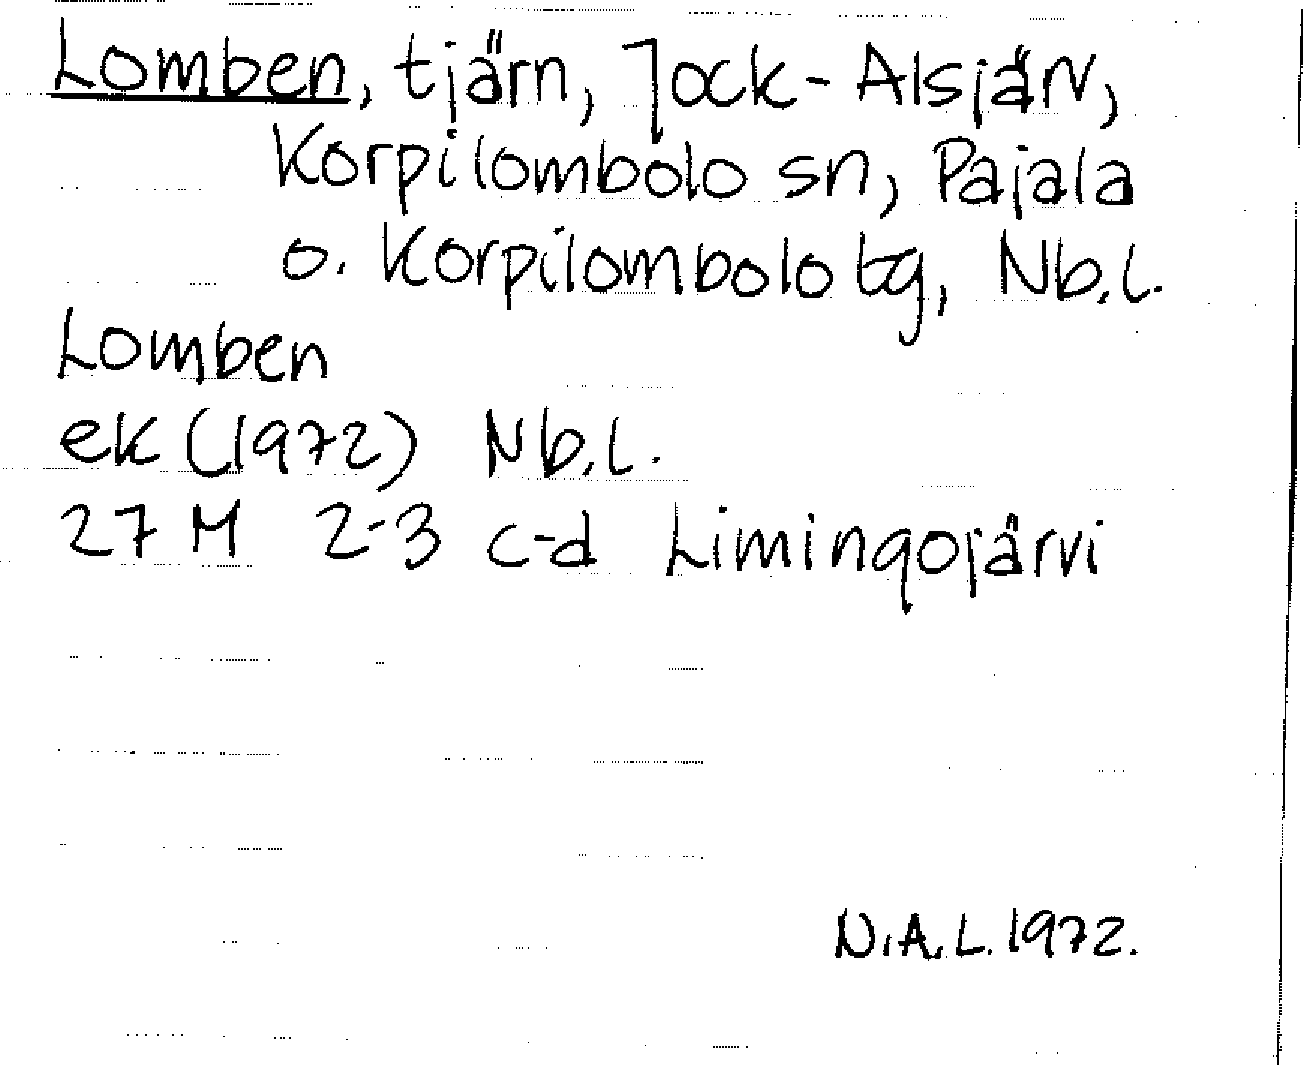 Lomben, tjärn, Jock-Alsjärv,
Korpilombolo sn, Pajala
o. Korpilombolo tg, Nb.l.
Lomben
ek (1972) Nb.l.
27 M 2-3 c-d Limingojärvi
N.A.L. 1972.